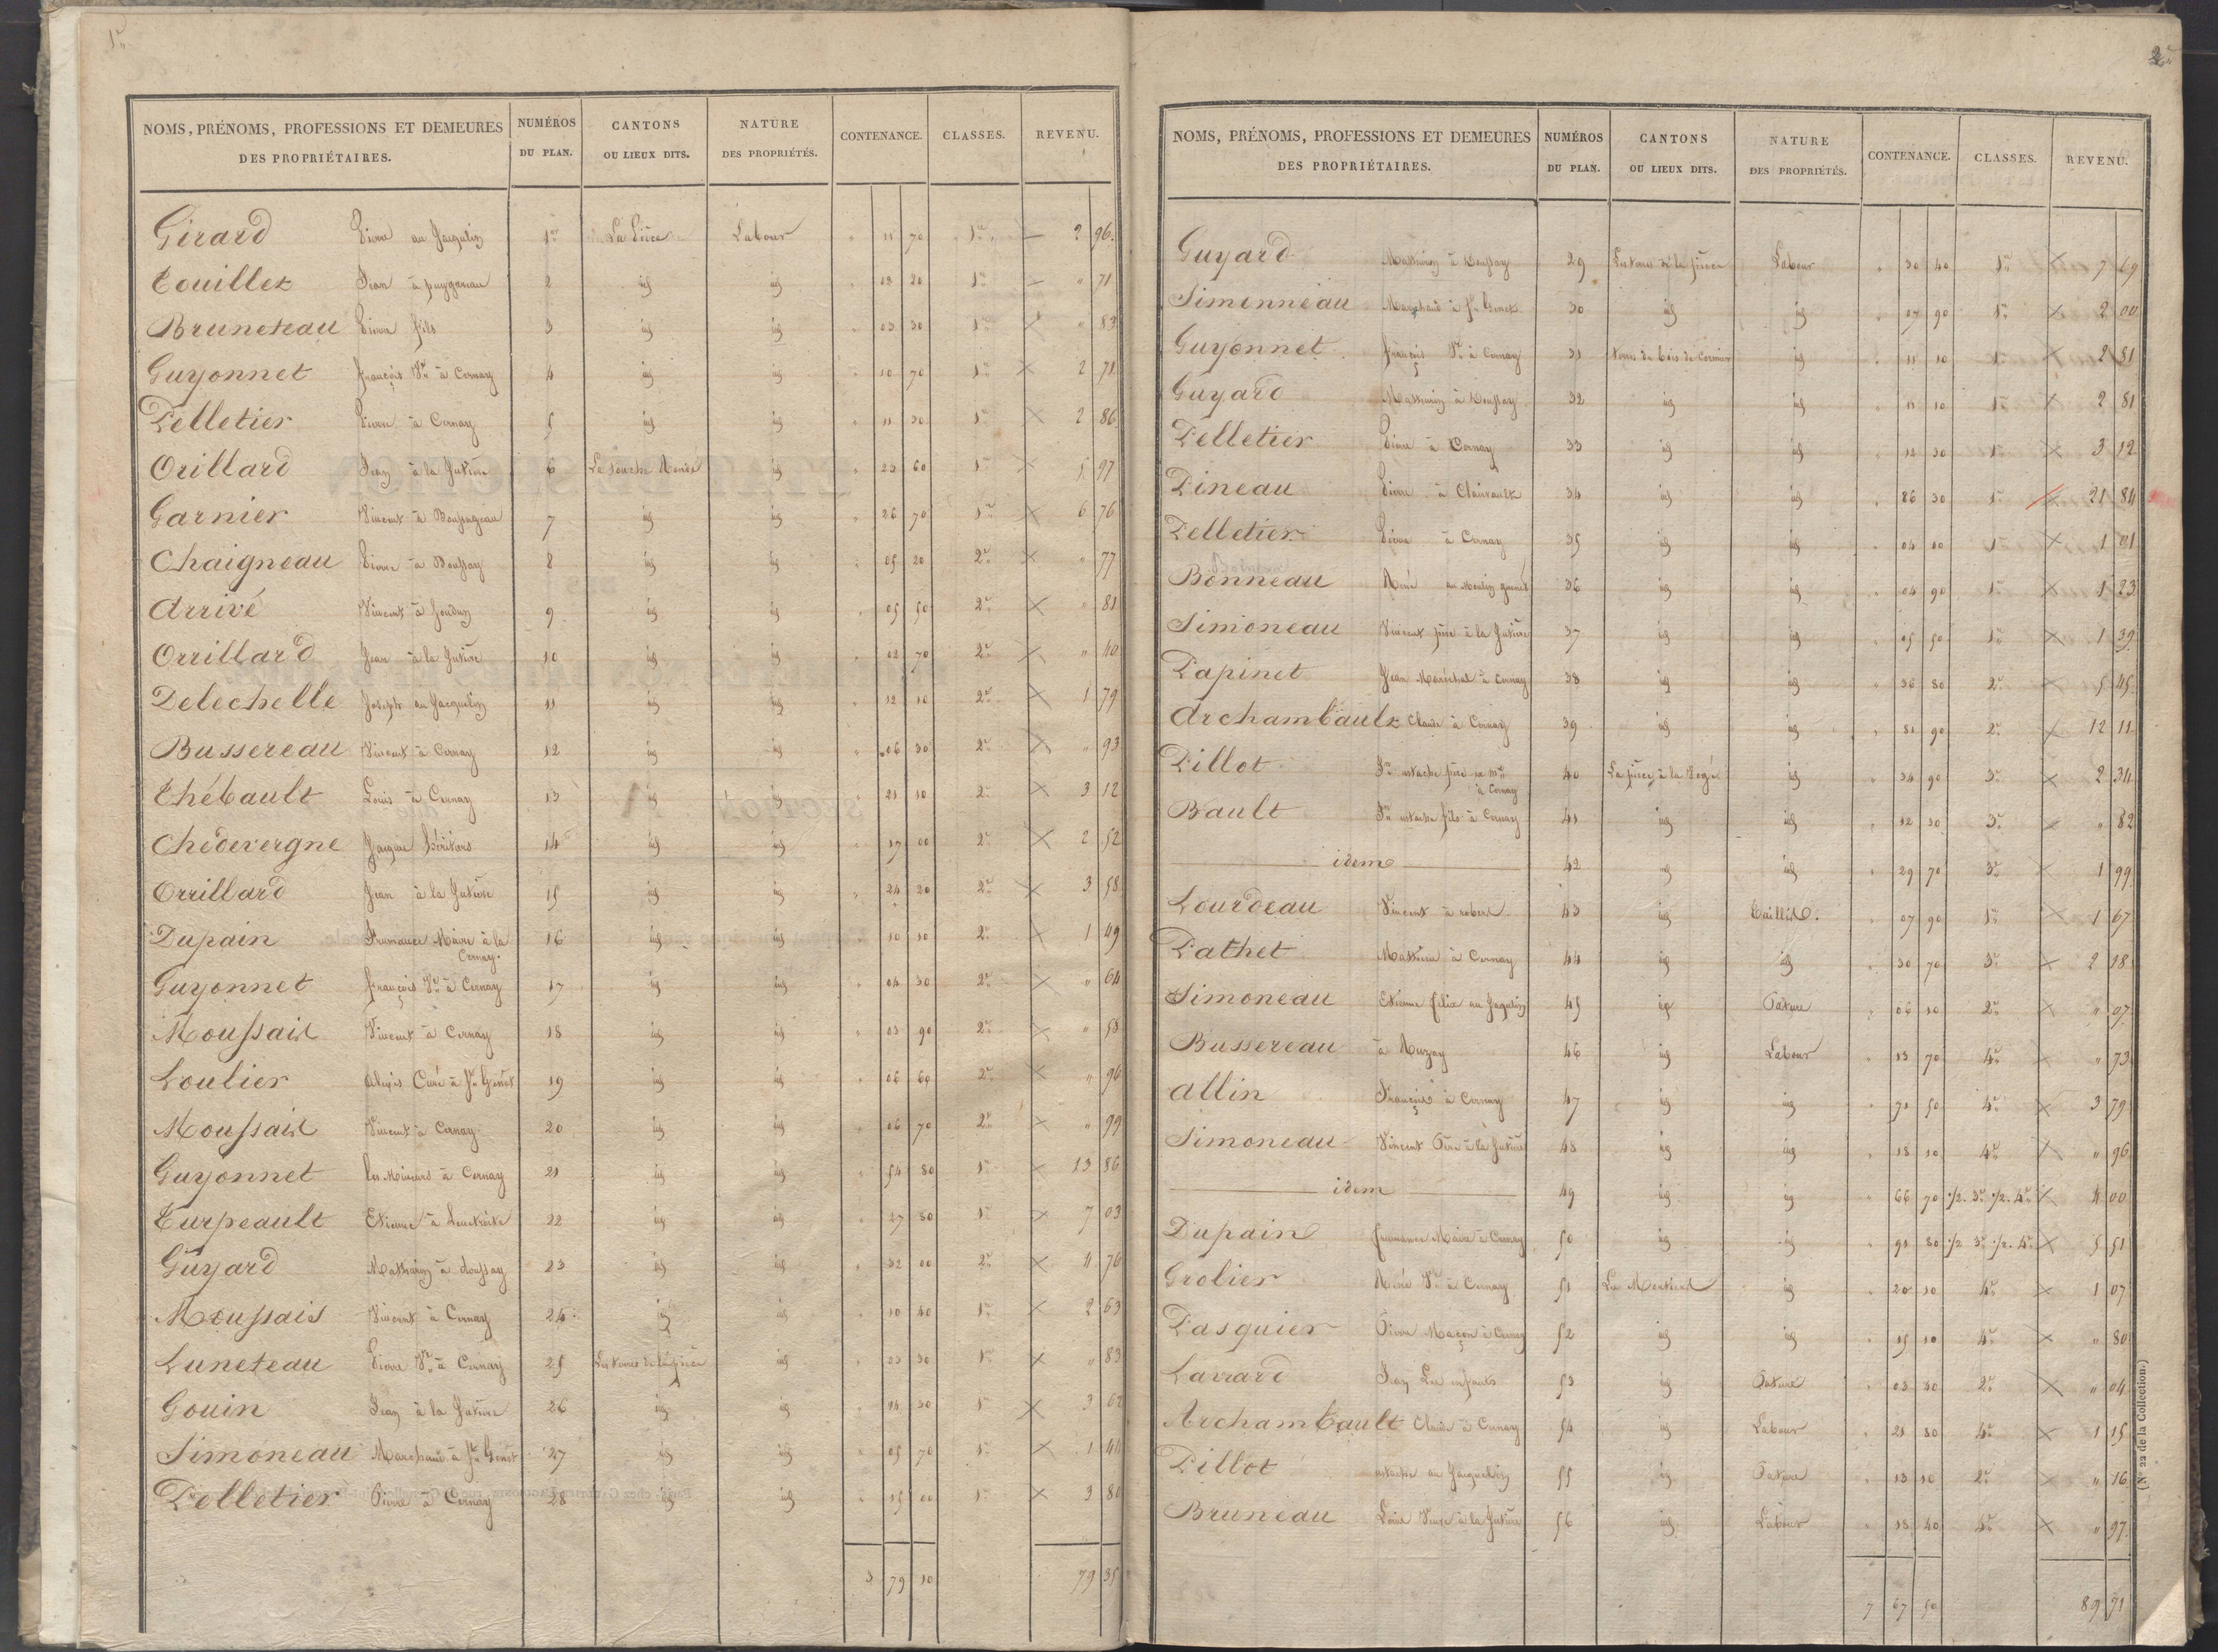 1re
NOMS, PRÉNOMS, PROFESSIONS ET DEMEURES DES PROPRIÉTAIRES. NUMÉROS DU PLAN. CANTONS OU LIEUX DITS. NATURE DES PROPRIÉTÉS. CONTENANCE. CLASSES. REVENU.
Girard Pierre au Jacquelin 1er La Pièce Labour " 11 70 1re 2 96
Touillet Jean à puygareau 2 id id " 02 80 1re " 71
Bruneteau Pierre fils 3 id id " 03 30 1re × " 83
Guyonnet françois Ve à Cernay 4 id id " 10 70 1re × 2 71
Pelletier Pierre à Cernay 5 id id " 11 30 1re × 2 86
Orillard Jean à la Jutière 6 La souche id " 23 60 1re × 5 97
Garnier Vincent à 7 id id " 26 70 1re × 6 76
Chaigneau Pierre à Doussay 8 id id " 05 20 2e × " 77
Arrivé Vincent à 9 id id " 05 50 2e × " 81
Orrillard Jean à la Jutière 10 id id " 02 70 2e × " 40
Delechelle Joseph au Jacquelin 11 id id " 12 10 2e × 1 79
Bussereau Vincent à Cernay 12 id id " 06 30 2e × " 93
Thébault Louis à Cernay 13 id id " 21 10 2e × 3 12
Chedevergne Jacques héritiers 14 id id " 17 00 2e × 2 52
Orrillard Jean à la Jutière 15 id id " 24 20 2e × 3 58
Dupain Maire à la Cernay. 16 id id " 10 10 2e × 1 49
Guyonnet françois Ve à Cernay 17 id id " 04 30 2e × " 64
Moussais Vincent à Cernay 18 id id " 03 90 2e × " 58
Loulier Alexis Curé à St Genest 19 id id " 06 60 2e × " 96
Moussais Vincent à Cernay 20 id id " 06 70 2e × " 99
Guyonnet les Mineurs à Cernay 21 id id " 54 80 1re × 13 86
Turpeault Etienne à 22 id id " 27 80 1re × 7 03
Guyard Mathurin à Doussay 23 id id " 32 00 2e × 4 76
Moussais Vincent à Cernay 24 id id " 10 40 1re × 2 63
Luneteau Pierre Ve à Cernay 25 Les terres de la pièce id " 23 30 1re × " 83
Gouin Jean à la Jutière 26 id id " 14 30 1re × 3 62
Simoneau Marchand à St Genest 27 id id " 05 70 1re × 1 44
Pelletier Pierre à Cernay 28 id id " 15 00 1re × 3 80
3 79 10 79 35
2e
NOMS, PRÉNOMS, PROFESSIONS ET DEMEURES DES PROPRIÉTAIRES. NUMÉROS DU PLAN. CANTONS OU LIEUX DITS. NATURE DES PROPRIÉTÉS. CONTENANCE. CLASSES. REVENU.
Guyard Mathurin à Doussay 29 Les terres de la pièce Labour " 30 40 1re × 7 69
Simonneau Marchand à St Genest 30 id id " 07 90 1re × 2 00
Guyonnet françois Ve à Cernay 31 Terres du bois de Cormier id " 11 10 1re × 2 81
Guyard Mathurin à Doussay 32 id id " 11 10 1re × 2 81
Pelletier Pierre à Cernay 33 id id " 12 30 1re × 3 12
Pineau Pierre à Clairvault 34 id id " 86 30 1re 21 84
Pelletier Pierre à Cernay 35 id id " 04 00 1re × 1 01
Bonneau René au Moulin 36 id id " 04 90 1re × 1 23
Simoneau Vincent père à la Jutière 37 id id " 05 50 1re × 1 39
Papinet Jean Maréchal à Cernay 38 id id " 36 80 2e × 5 45
Archambault Claude à Cernay 39 id id " 81 90 2e × 12 11
Pillot père à Cernay 40 La pièce à la id " 34 90 3e × 2 34
Brault fils à Cernay 41 id id " 12 30 3e × " 82
idem 42 id id " 29 70 3e × 1 99
Lourdeau Vincent à 43 id Taillis. " 07 90 1re × 1 67
Pathet Mathieu à Cernay 44 id id " 30 70 3e × 2 18
Simoneau Etienne felix au Jaquelin 45 id Pature " 06 10 2e × " 07
Bussereau à Nuzay 46 id Labour " 13 70 4e × " 73
Allin François à Cernay 47 id id " 71 50 4e × 3 79
Simoneau Vincent Père à la Jutière 48 id id " 18 10 4e × " 96
idem 49 id id " 66 70 1/2. 3e 1/2. 4e × 4 00
Dupain Maire à Cernay 50 id id " 91 80 1/2 3e 1/2. 4e × 5 51
Grolier René Ve à Cernay 51 id " 20 10 4e × 1 07
Pasquier Pierre Maçon à Cernay 52 id id " 15 10 4e × " 80
Lavrard Jean Les enfants 53 id Pature " 03 40 2e × " 04
Archambault Claude à Cernay 54 id Labour " 21 80 4e × 1 15
Pillot au Jacquelin 55 id Pature " 13 10 2e × " 16
Bruneau Louis à la Jutière 56 id Labour " 18 40 4e × " 97
7 67 50 89 71
(No 22 de la Collection.)